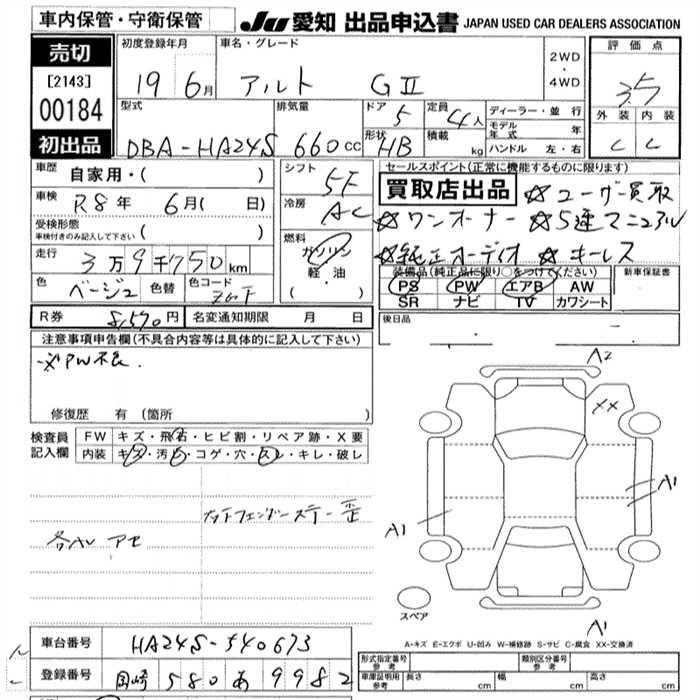 車内保管・守衛保管
JU 愛知 出品申込書 JAPAN USED CAR DEALERS ASSOCIATION
売切
[2143]
00184
初出品
初度登録年月 車名・グレード 2WD・4WD 評価点
19 6月 アルト GⅡ 3.5
型式 排気量 ドア 5 定員 4人 ディーラー・並行 外装 内装
DBA-HA24S 660cc 形状 HB 積載 kg モデル年式 年 C C
ハンドル 左・右
車歴 自家用・( )
車検 R8年 6月( 日)
受検形態
車検付きのみ記入して下さい ( )
走行 3万9千750km
色 ベージュ 色替 色コード
シフト 5F
冷房 AC
燃料 ガソリン
軽・油
( ・ )
セールスポイント(正常に機能するものに限ります)
買取店出品 ☆ユーザー買取
☆ワンオーナー ☆5速マニュアル
☆純正オーディオ ☆キーレス
装備品(純正品に限り○をつけてください) 新車保証書
PS PW エアB AW
SR ナビ TV カワシート
R券 8,590円 名変通知期限 月 日
後日品
注意事項申告欄(不具合内容等は具体的に記入して下さい)
※PW不良.
修復歴 有 (箇所 )
検査員記入欄
FW キズ・飛石・ヒビ割・リペア跡・X要
内装 キズ・汚れ・コゲ・穴・スレ・キレ・破レ
カットフェンダーステー歪
各AU アセ
A2
XX
A1
A1
A1
スペア
A-キズ E-エクボ U-凹み W-補修跡 S-サビ C-腐食 XX-交換済
車台番号 HA24S-540673
登録番号 岡崎 580 あ 9982
形式指定番号 参考 類別区分番号 参考
車庫証明用 参考 長さ cm 幅 cm 高さ cm